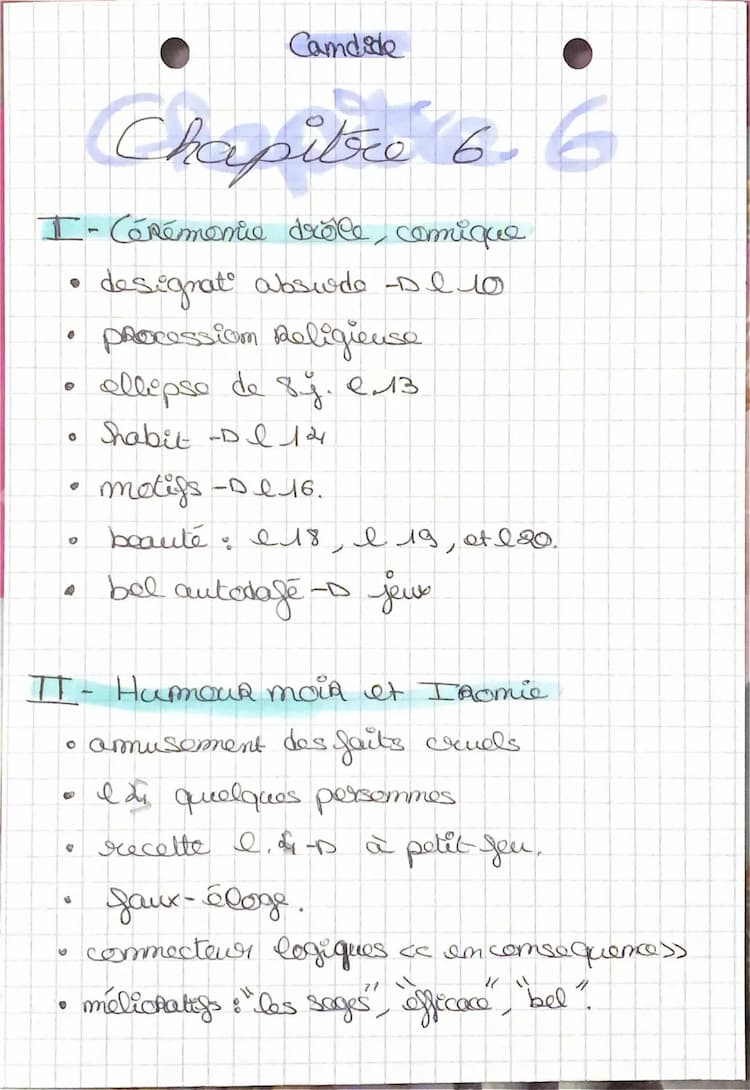 Candide
Chapitre 6
I - Cérémonie drôle, comique
• designat° absurde → l 10
• procession religieuse
• ellipse de 8 j. l 13
• habit → l 14
• motifs → l 16.
• beauté : l 18, l 19, et l 20.
• bel autodafé → jeux
II - Humour noir et Ironie
• amusement des faits cruels
• l 4 quelques personnes
• recette l. 4 → à petit feu.
• faux-éloge.
• connecteur logiques << en consequence >>
• mélioratifs : "les sages", "efficace", "bel".